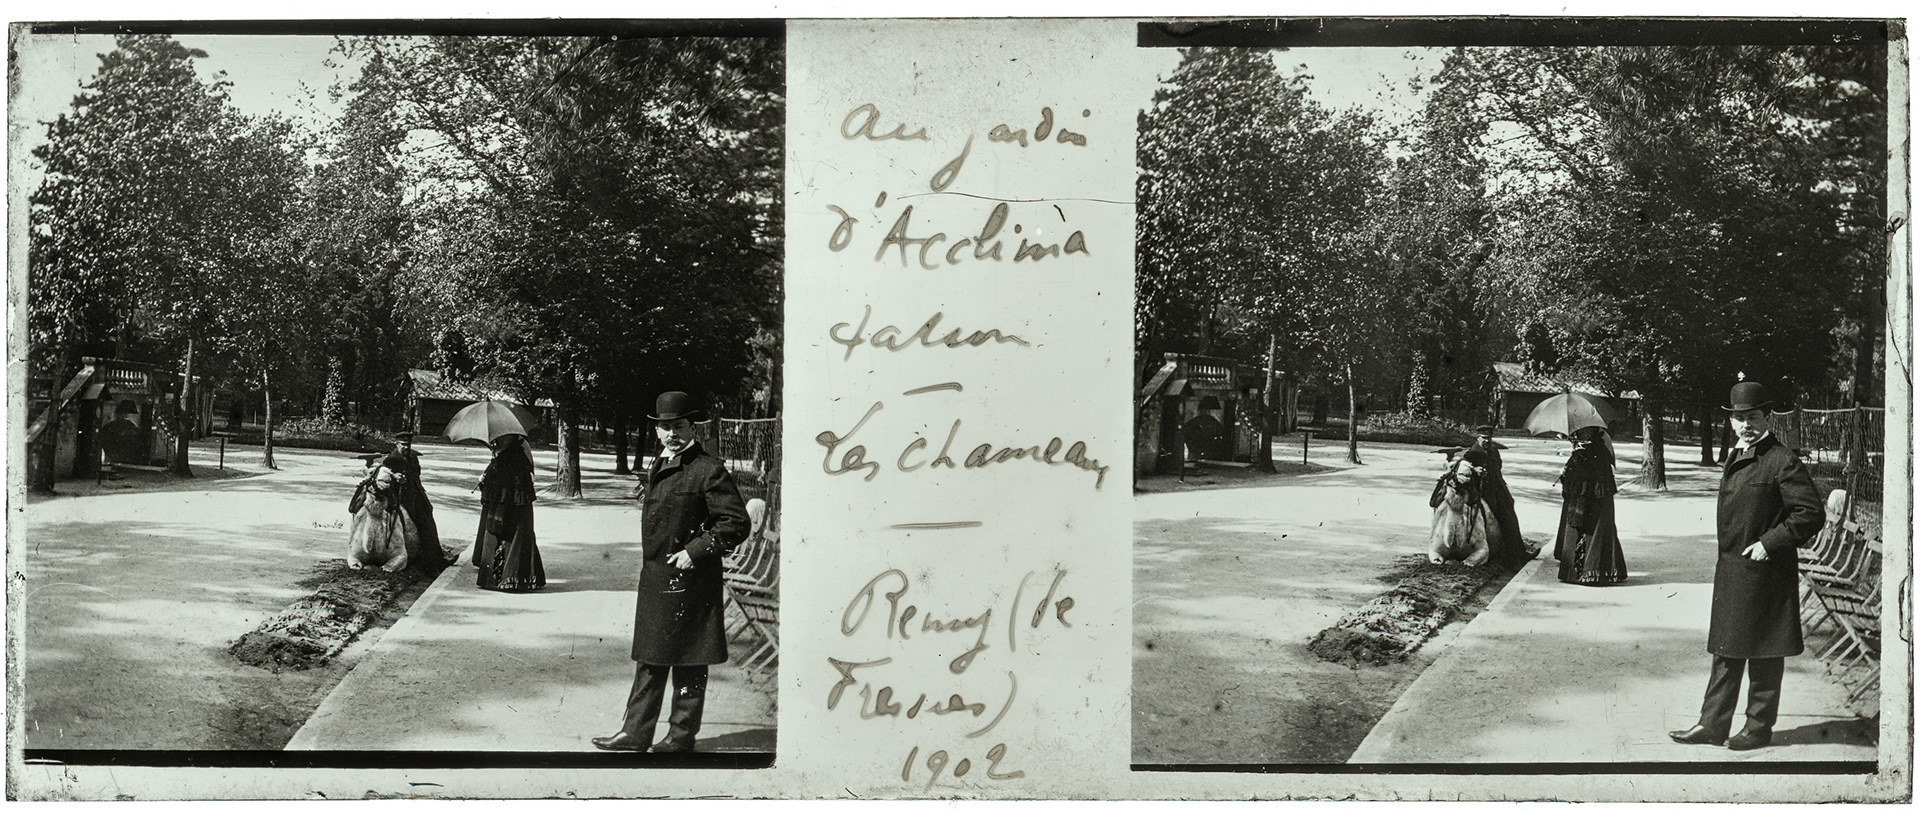 au jardin
d'Acclima
tatson
Les chameaux
Remy (de
Fresnes)
1902